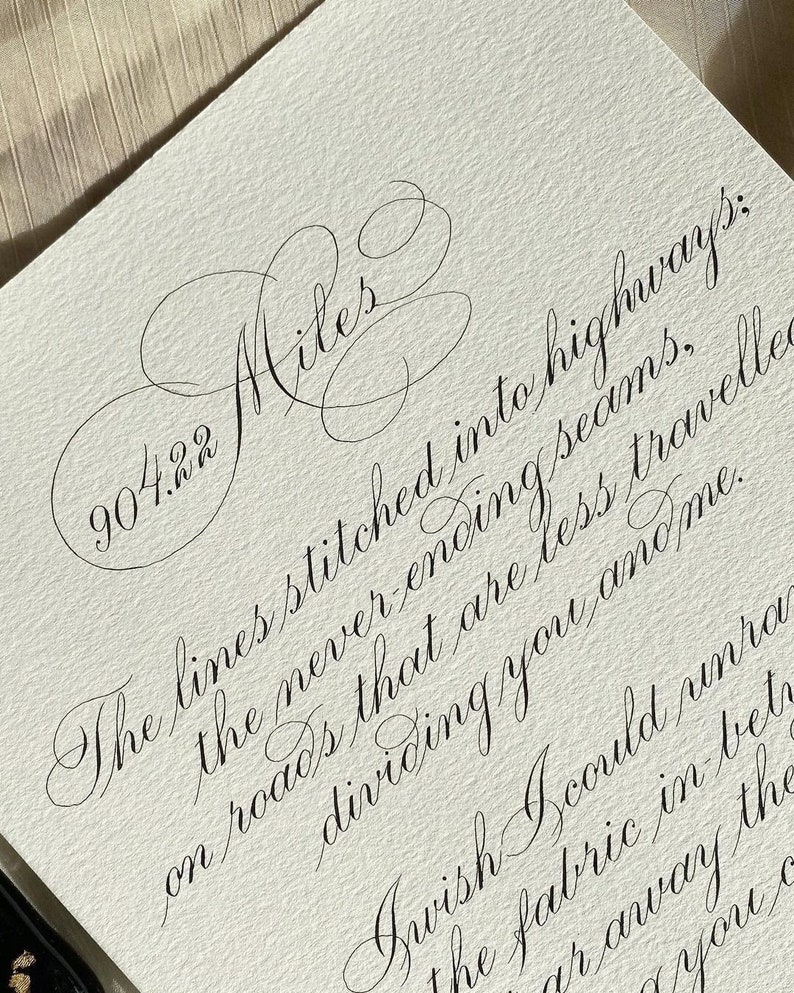 904.22 Miles
The lines stitched into highways;
the never-ending seams,
on roads that are less travelled
dividing you and me.
I wish I could
the fabric in-
away the
you